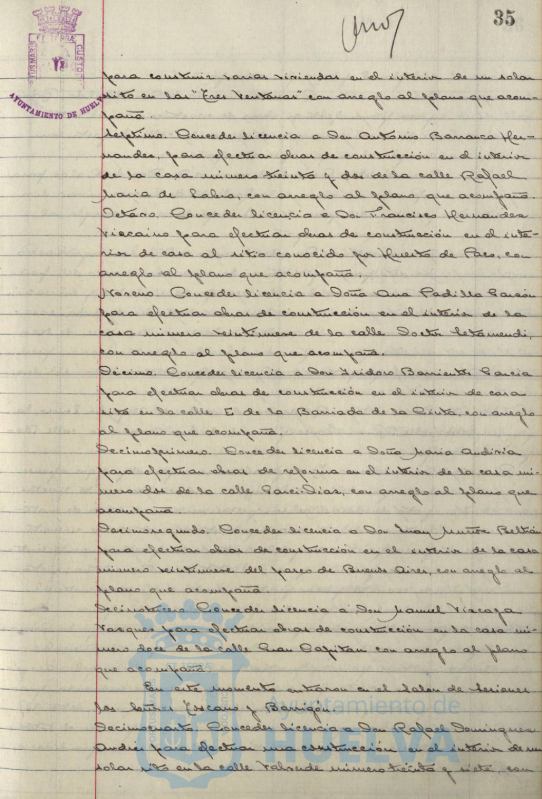 35
AYUNTAMIENTO DE HUELVA
para construir varias viviendas en el interior de un solar
sito en las "Tres Ventanas" con arreglo al plano que acom-
paña.
Septimo. Conceder licencia a Don Antonio Barranca Her-
nandez, para efectuar obras de construcción en el interior
de la casa numero treinta y dos de la calle Rafael
Maria de Labra, con arreglo al plano que acompaña.
Octavo. Conceder licencia a Don Francisco Hernandez
Vizcaino para efectuar obras de construcción en el inte-
rior de casa al sitio conocido por Huerto de Paco, con
arreglo al plano que acompaña.
Noveno. Conceder licencia a Doña Ana Padilla Garzón
para efectuar obras de construcción en el interior de la
casa numero veintinueve de la calle Doctor Letamendi,
con arreglo al plano que acompaña.
Décimo. Conceder licencia a Don Isidoro Barrientos Garcia
para efectuar obras de construcción en el interior de casa
sita en la calle E de la Barriada de la Cinta, con arreglo
al plano que acompaña.
Decimoprimero. Conceder licencia a Doña Maria
para efectuar obras de reforma en el interior de la casa nu-
mero dos de la calle Garci-Diaz, con arreglo al plano que
acompaña
Decimosegundo. Conceder licencia a Don Juan Muñoz Beltrán
para efectuar obras de construcción en el interior de la casa
numero veintinueve del paseo de Buenos Aires, con arreglo al
plano que acompaña.
Decimotercero. Conceder licencia a Don Manuel Vizcaya
Vazquez para efectuar obras de construcción en la casa nu-
mero doce de la calle Gran Capitan con arreglo al plano
que acompaña.
En este momento entraron en el Salon de Sesiones
los Señores Escano y Barrigón.
Decimocuarto. Conceder licencia a Don Rafael Dominguez
Andrés para efectuar una construcción en el interior de un
solar sito en la calle Valverde numero treinta y siete, con
Ayuntamiento de
HUELVA